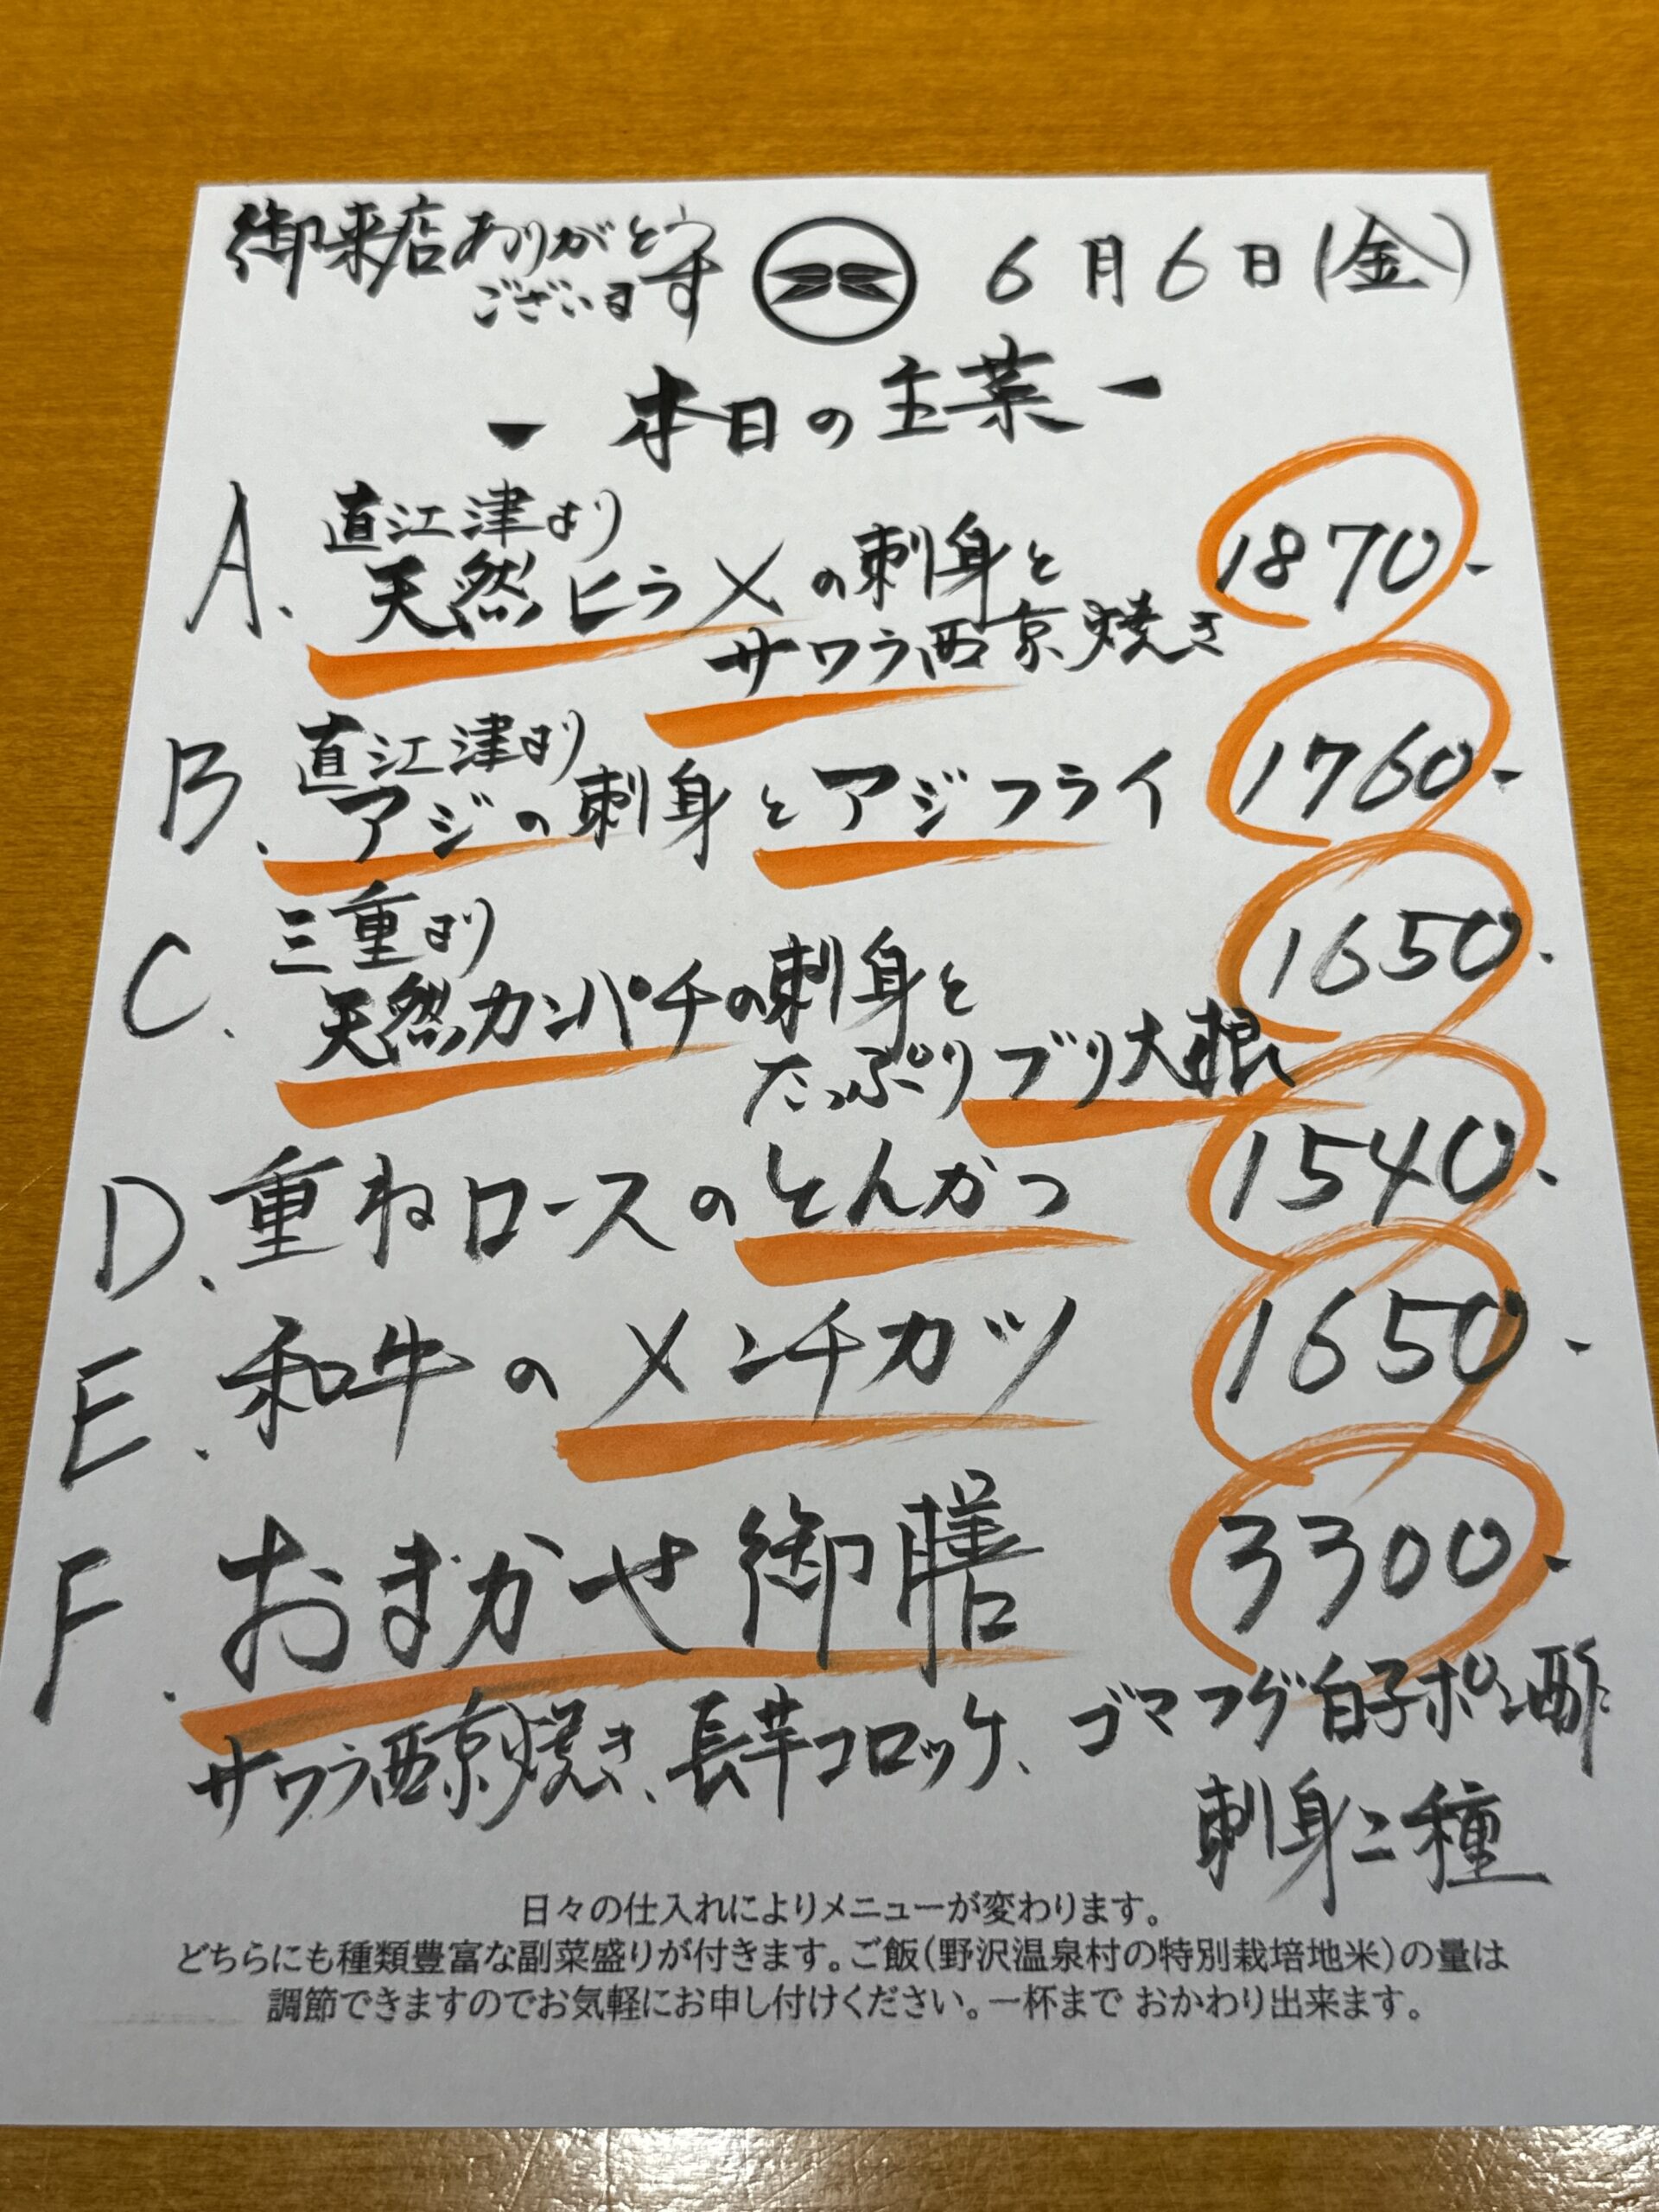 御来店ありがとう
ございます
6月6日(金)
- 本日の主菜 -
A. 直江津より
天然ヒラメの刺身と
サワラ西京焼き
1870.-
B. 直江津より
アジの刺身とアジフライ
1760.-
C. 三重より
天然カンパチの刺身と
たっぷりブリ大根
1650.-
D. 重ねロースのとんかつ 1540.-
E. 和牛のメンチカツ 1650.-
F. おまかせ御膳 3300.-
サワラ西京焼き、長芋コロッケ、ゴマフグ白子ポン酢
刺身二種
日々の仕入れによりメニューが変わります。
どちらにも種類豊富な副菜盛りが付きます。ご飯(野沢温泉村の特別栽培地米)の量は
調節できますのでお気軽にお申し付けください。一杯まで おかわり出来ます。